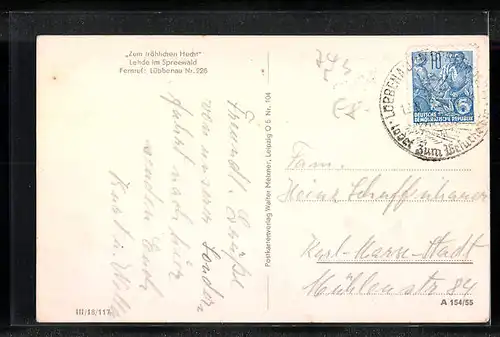 „Zum fröhlichen Hecht"
Lehde im Spreewald
Fernruf: Lübbenau Nr. 228
Freundl. Grüße
von unserer Sonder
fahrt nach hier
senden Euch
Kurt u.
Postkartenverlag Walter Meixner, Leipzig O 5 Nr. 104
III/18/117
10
DEUTSCHE
DEMOKRATISCHE REPUBLIK
LÜBBENAU
ladet zum Besuch
Fam.
Heinz Schuffenhauer
Karl-Marx-Stadt
Mühlenstr 84
A 154/55